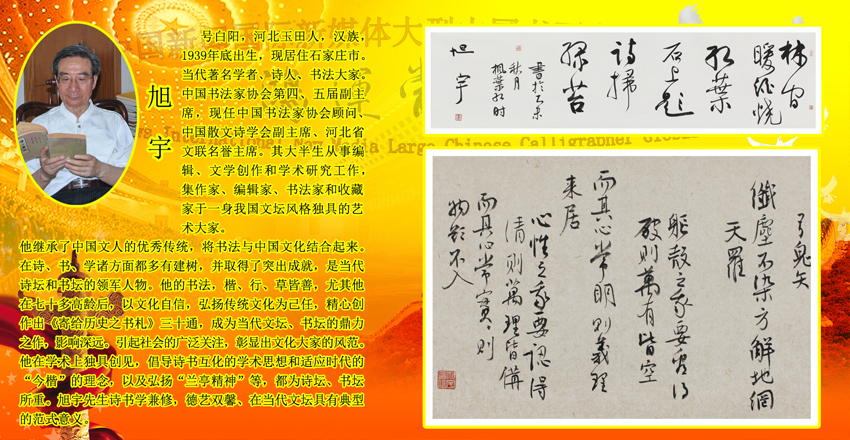 旭宇
号白阳，河北玉田人，汉族，
1939年底出生，现居住石家庄市。
当代著名学者、诗人、书法大家。
中国书法家协会第四、五届副主
席，现任中国书法家协会顾问、
中国散文诗学会副主席、河北省
文联名誉主席。其大半生从事编
辑、文学创作和学术研究工作，
集作家、编辑家、书法家和收藏
家于一身我国文坛风格独具的艺
术大家。
他继承了中国文人的优秀传统，将书法与中国文化结合起来。
在诗、书、学诸方面都多有建树，并取得了突出成就，是当代
诗坛和书坛的领军人物。他的书法，楷、行、草皆善，尤其他
在七十多高龄后，以文化自信，弘扬传统文化为己任，精心创
作出《寄给历史之书札》三十通，成为当代文坛、书坛的鼎力
之作，影响深远。引起社会的广泛关注，彰显出文化大家的风范。
他在学术上独具创见，倡导诗书互化的学术思想和适应时代的
“今楷”的理念，以及弘扬“兰亭精神”等，都为诗坛、书坛
所重。旭宇先生诗书学兼修，德艺双馨、在当代文坛具有典型
的范式意义。
林间
暖酒烧
红葉
石上题
诗掃
绿苔
秋月
楓葉红时
旭宇
弓鬼矢
纖塵不染方解地網
天羅
軀殻之我要看得
破則萬有皆空
而其心常則義理
来居
心性之我要認得
清則萬理皆備
而其心常實則
物欲不入
International New Media Large Chinese Calligrapher Global